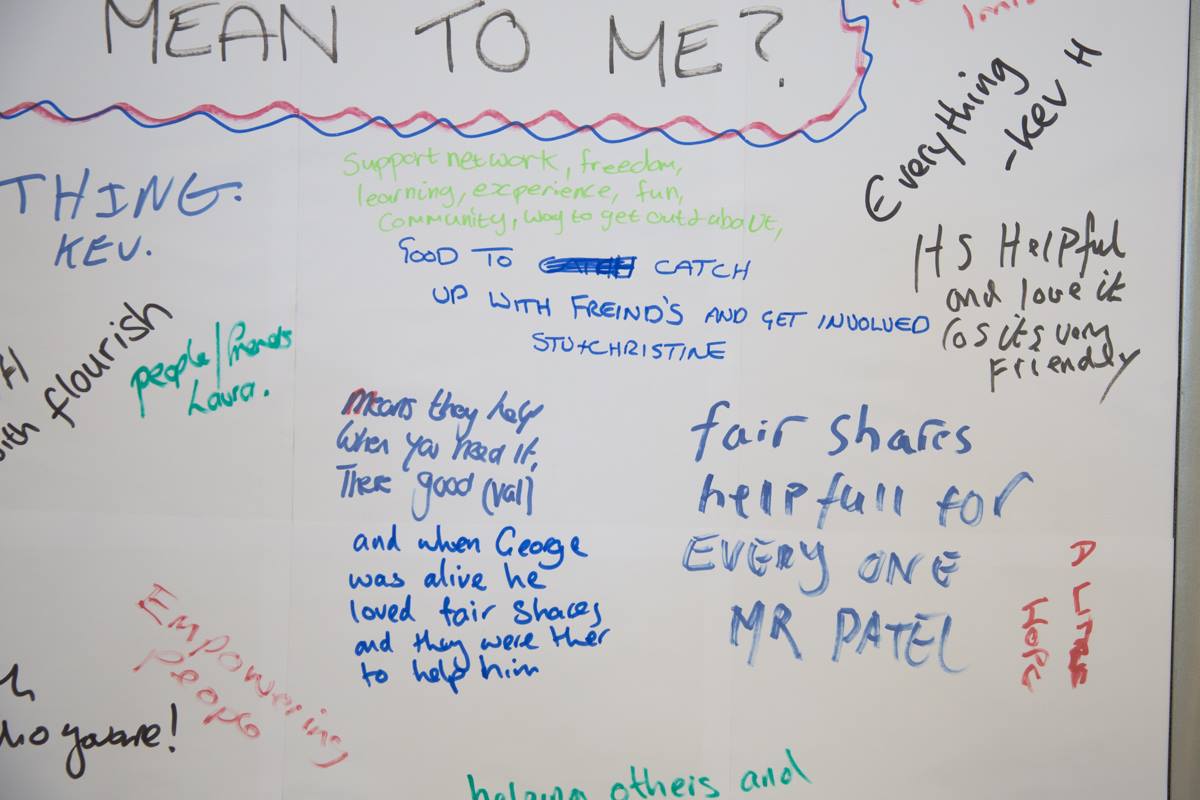 MEAN TO ME?
Everything
-Kev H
THING.
KEV.
Support network, freedom,
learning, experience, fun,
Community, way to get out & about,
GOOD TO CATCH
UP WITH FREIND'S AND GET INVOLVED
STU+CHRISTINE
ITS Helpful
and love it
as its very
Friendly
with flourish
people/friends
Laura.
Means they help
when you need it,
There good (val)
and when George
was alive he
loved fair shares
and they were ther
to help him
fair shares
helpfull for
EVERY ONE
MR PATEL
A LITTLE
HOPE
EMPOWERING
People
who you are!
helping others and